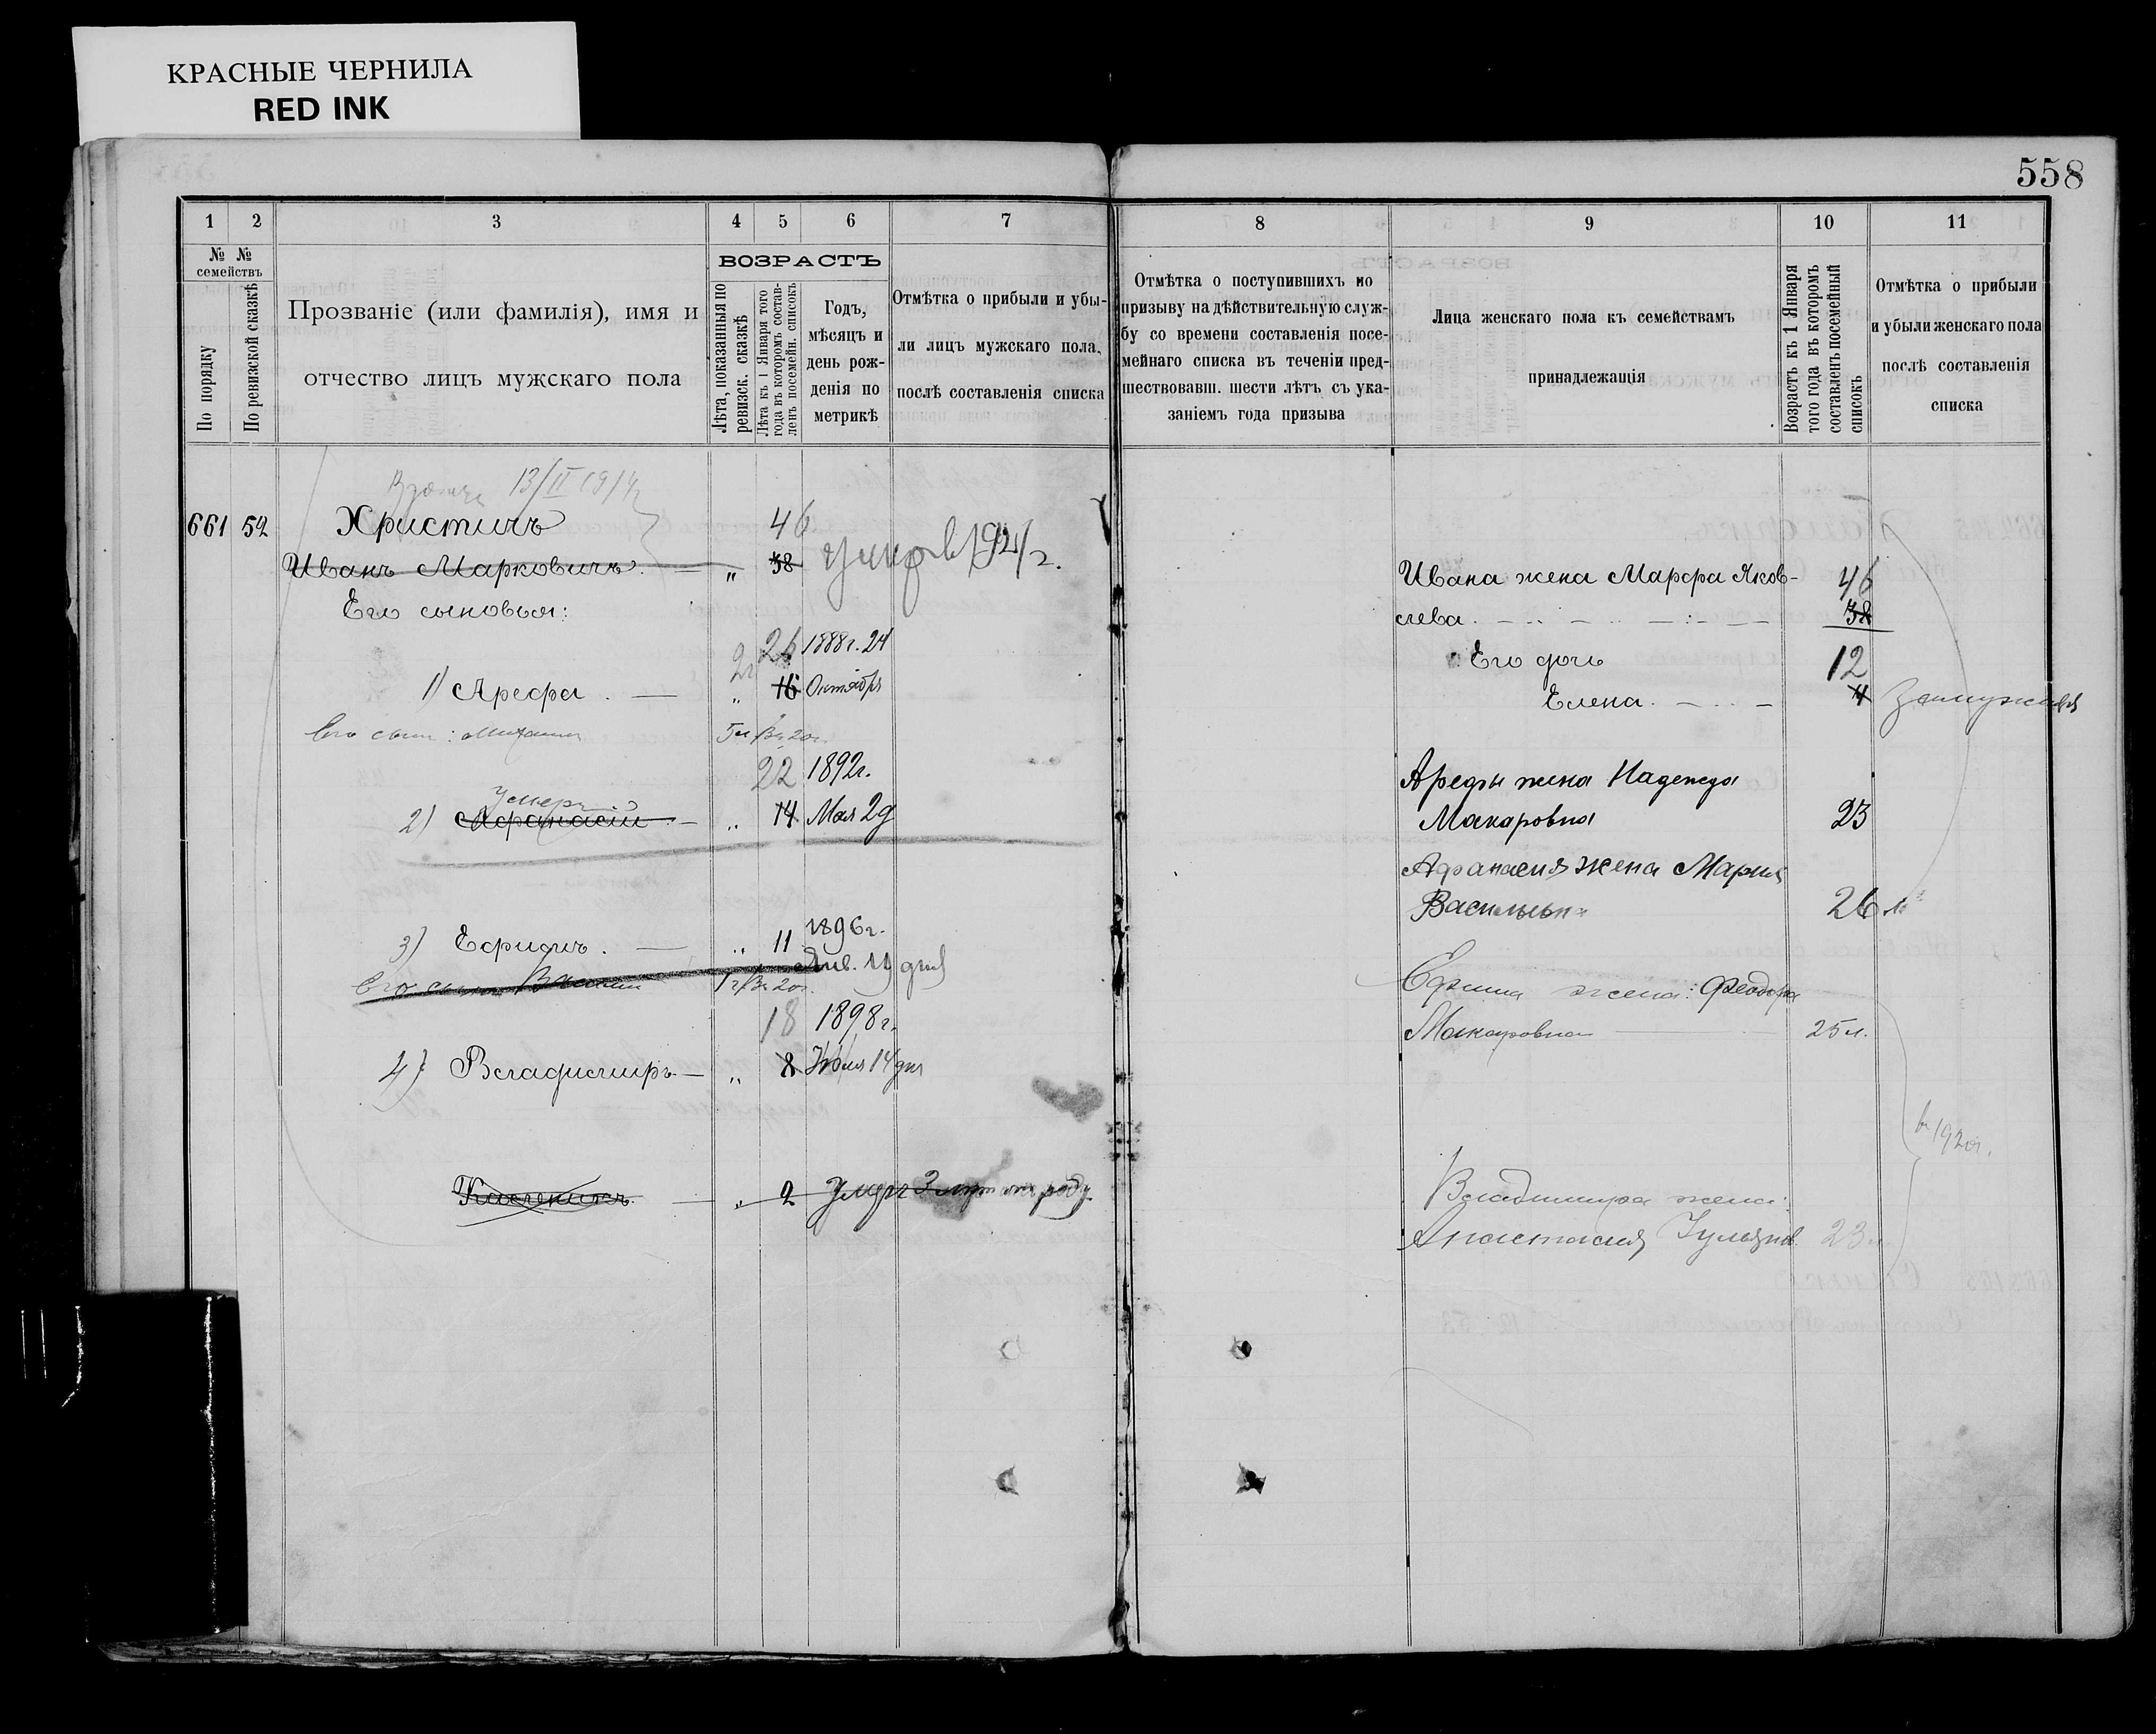 КРАСНЫЕ ЧЕРНИЛА
RED INK
558
1 2 3 4 5 6 7
№ № семействъ
По порядку
По ревизской сказкѣ
Прозваніе (или фамилія), имя и
отчество лицъ мужскаго пола
ВОЗРАСТЪ
Лѣта, показанныя по
ревизск. сказкѣ
Лѣта къ 1 Января того
года въ которомъ состав-
ленъ посемейн. списокъ
Годъ,
мѣсяцъ и
день рож-
денія по
метрикѣ
Отмѣтка о прибыли и убы-
ли лицъ мужскаго пола,
послѣ составленія списка
13/II 1914
661 52 Христичъ 46
Иванъ Марковичъ. — „ 38 умеръ 1921 г.
Его сыновья:
26 1888г. 24
1) Арефа. — „ 16 Октября
Его сынъ: Михаилъ 5л Въ 20г.
22 1892г.
Умеръ
2) Афанасій — „ 14 Мая 2 д
1896г.
3) Ефимъ. — „ 11 Янв. 11 дня
Его сынъ Василій 1г Въ 20г.
18 1898г.
4) Владиміръ — „ 8 Июля 14 дня
— „ 2 Умеръ роду
8 9 10 11
Отмѣтка о поступившихъ по
призыву на дѣйствительную служ-
бу со времени составленія посе-
мейнаго списка въ теченіи пред-
шествовавш. шести лѣтъ съ ука-
заніемъ года призыва
Лица женскаго пола къ семействамъ
принадлежащія
Возрастъ къ 1 Января
того года въ которомъ
составленъ посемейный
списокъ
Отмѣтка о прибыли
и убыли женскаго пола
послѣ составленія
списка
Ивана жена Марфа Яков- 46
лева. 38
Его дочь 12
Елена. 4 замужняя
Арефы жена Надежда
Макаровна 23
Афанасія жена Марія
Васильевн 26 л
Ефима жена: Феодора
Макаровна 25 л.
в 1920г.
Владиміра жена:
Анастасія 23 л